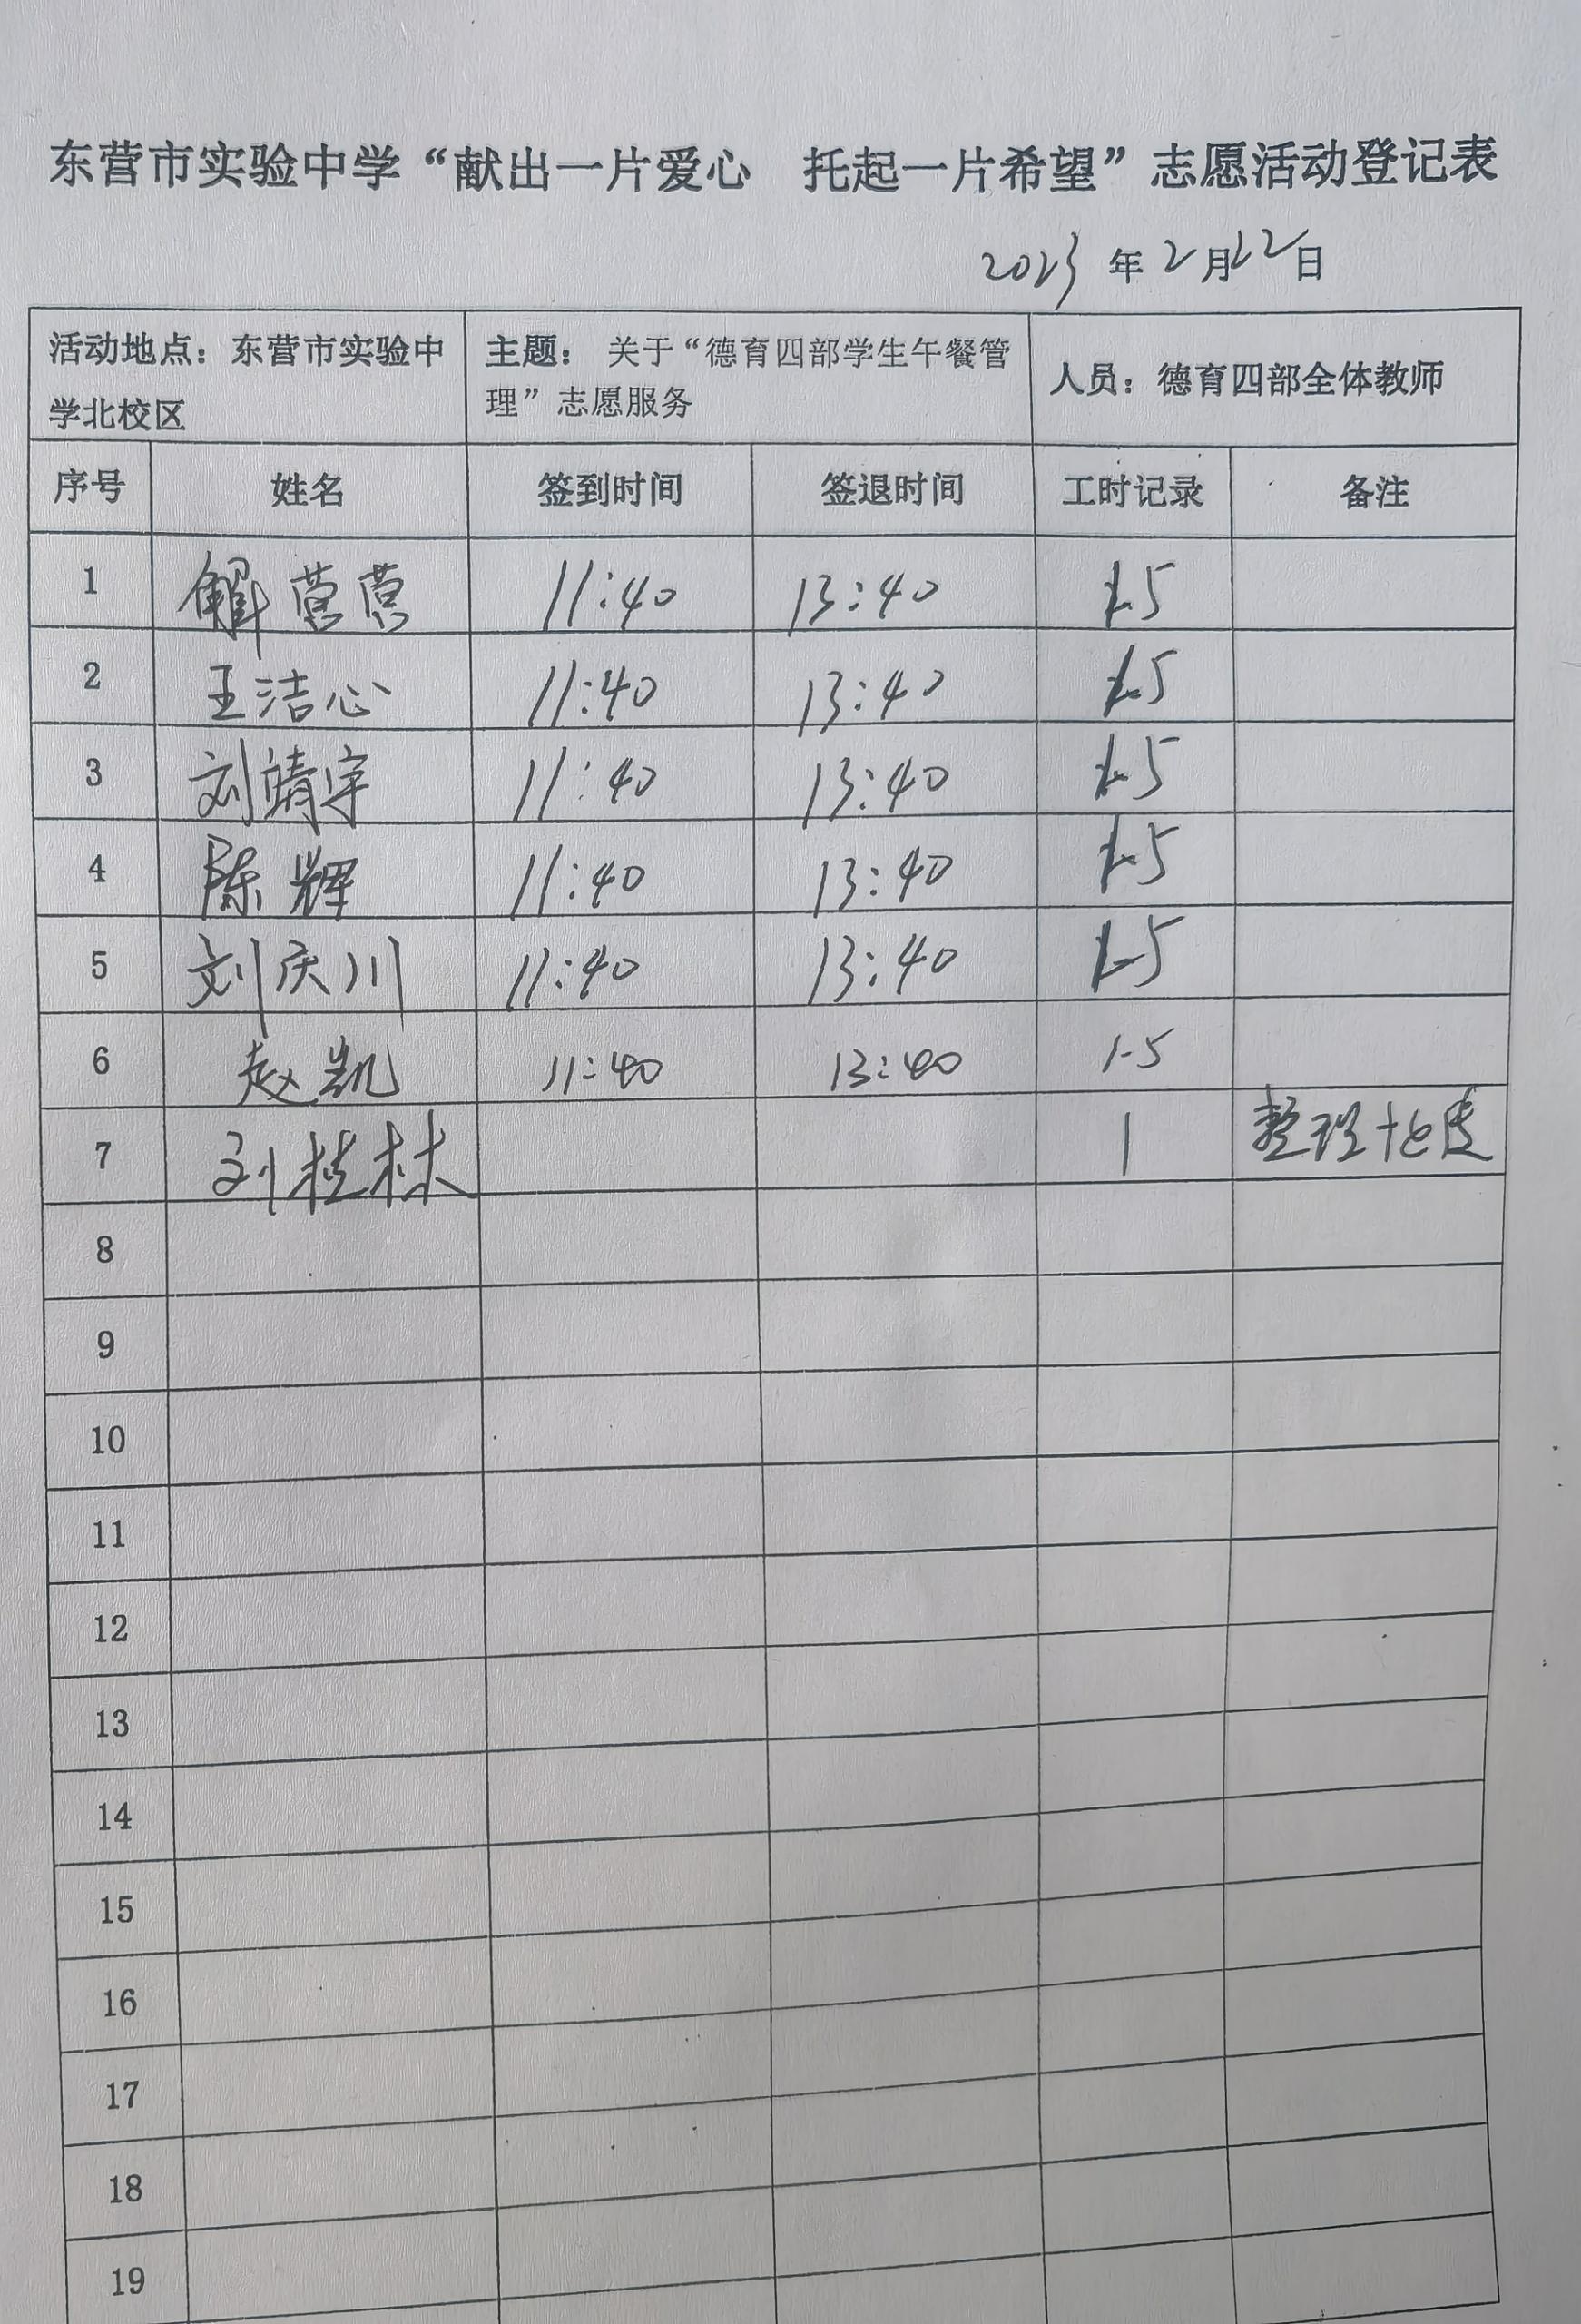 东营市实验中学“献出一片爱心 托起一片希望”志愿活动登记表
2023年2月22日
活动地点：东营市实验中学北校区 主题：关于“德育四部学生午餐管理”志愿服务 人员：德育四部全体教师
序号 姓名 签到时间 签退时间 工时记录 备注
1 解营营 11:40 13:40 1.5
2 王洁心 11:40 13:40 1.5
3 刘靖宇 11:40 13:40 1.5
4 陈辉 11:40 13:40 1.5
5 刘庆川 11:40 13:40 1.5
6 赵凯 11:40 13:40 1.5
7 刘桂林 1 整理
8
9
10
11
12
13
14
15
16
17
18
19